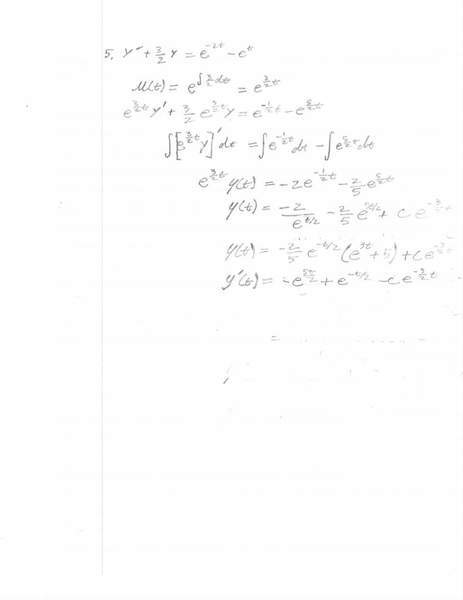 5. y' + 3/2 y = e^{-2t} - e^t
μ(t) = e^{∫ 3/2 dt} = e^{3/2 t}
e^{3/2 t} y' + 3/2 e^{3/2 t} y = e^{-1/2 t} - e^{5/2 t}
∫[e^{3/2 t} y]' dt = ∫e^{-1/2 t} dt - ∫e^{5/2 t} dt
e^{3/2 t} y(t) = -2e^{-1/2 t} - 2/5 e^{5/2 t}
y(t) = -2/e^{t/2} - 2/5 e^{5t/2} + c e^{-3/2 t}
y(t) = -2/5 e^{-t/2} (e^{3t} + 5) + c e^{-3/2 t}
y'(t) = -e^{5t/2} + e^{-t/2} - c e^{-3/2 t}
=